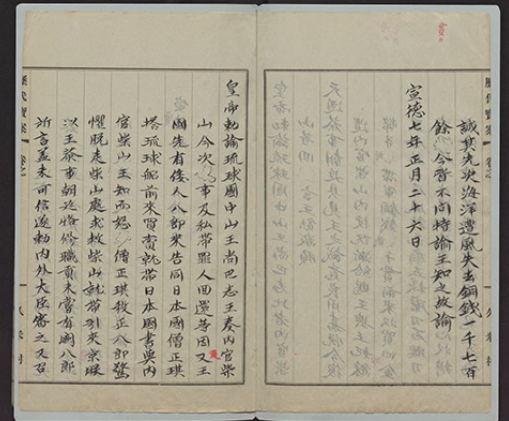 歷代寶案
誠其先次海洋遭風失去銅錢一千七百
餘 今暫不問特諭王知之故諭
宣德七年正月二十六日
皇帝勅諭琉球國中山王尚巴志王奏內官柴
山今次 事及私帶罪人回還等因又王
國先有倭人八郎來告同日本國僧正琪
搭琉球船前來買賣就帶日本國書與內
官柴山王知而怒 僧正琪 正八郎驚
懼脫走柴山處求救柴山就帶引來京
以王恭事朝廷恪修職貢未嘗有闕八郎
所言蓋未可信遂勅內外大臣審之又召
歷代寶案